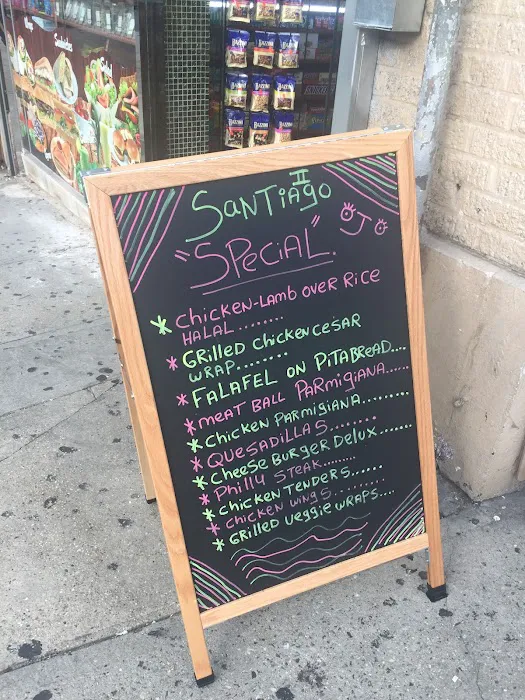 Santiago II
"SPECIAL"
* CHICKEN-LAMB OVER RICE
HALAL........
* GRilled CHICKEN CESAR
WRAP........
* FALAFEL ON PITABREAD....
* MEAT BALL PARMIGIANA......
* CHICKEN PARMIGIANA.........
* QUESADILLAS........
* CHEESE BURGER DELUX.......
* PHILLY STEAK.........
* CHICKEN TENDERS......
* CHICKEN WINGS.........
* GRILLED VEGGIE WRAPS....